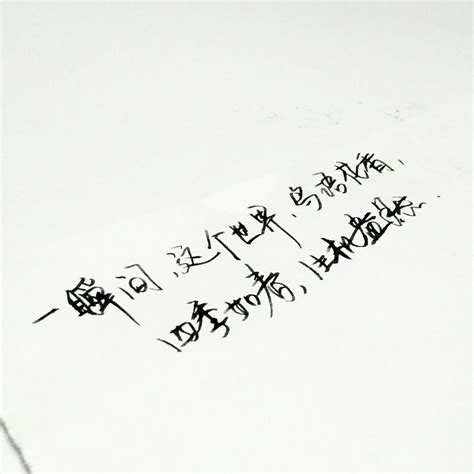 一瞬间,这个世界,鸟语花香,
四季如春,生机盎然..